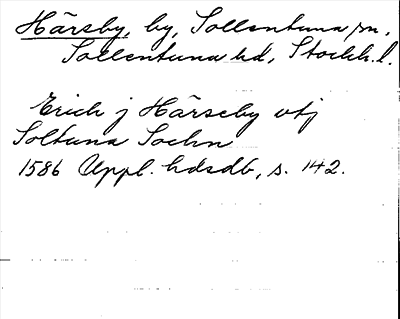 Härsby, by, Sollentuna sn,
Sollentuna hd, Stockh. l.
Erich j Härseby vtj
Soltuna Sochn
1586 Uppl. hdsdb, s. 142.